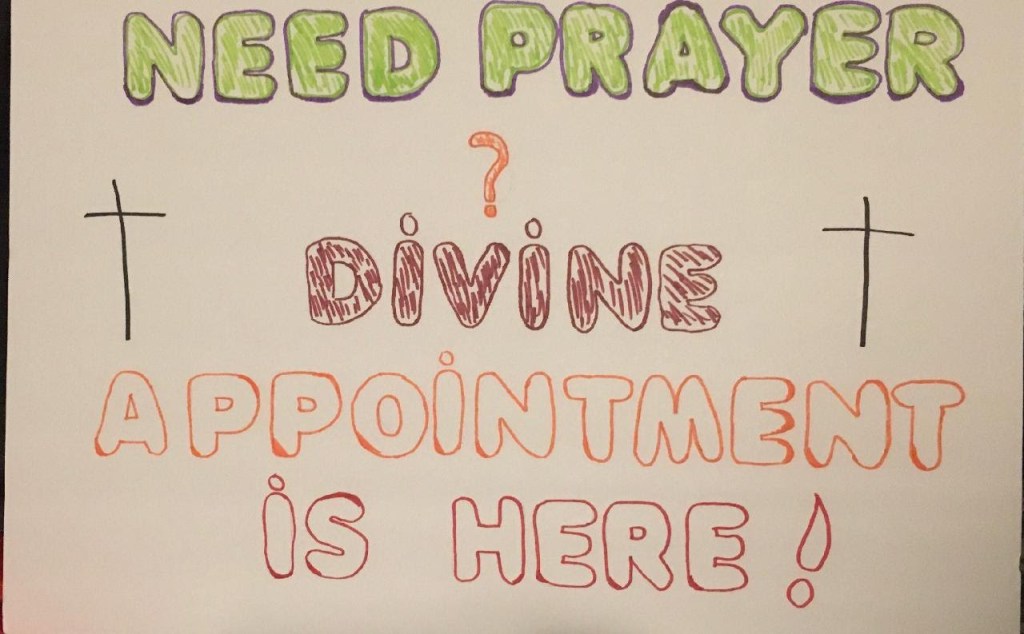 NEED PRAYER
?
DiViNE
APPOiNTMENT
iS HERE!